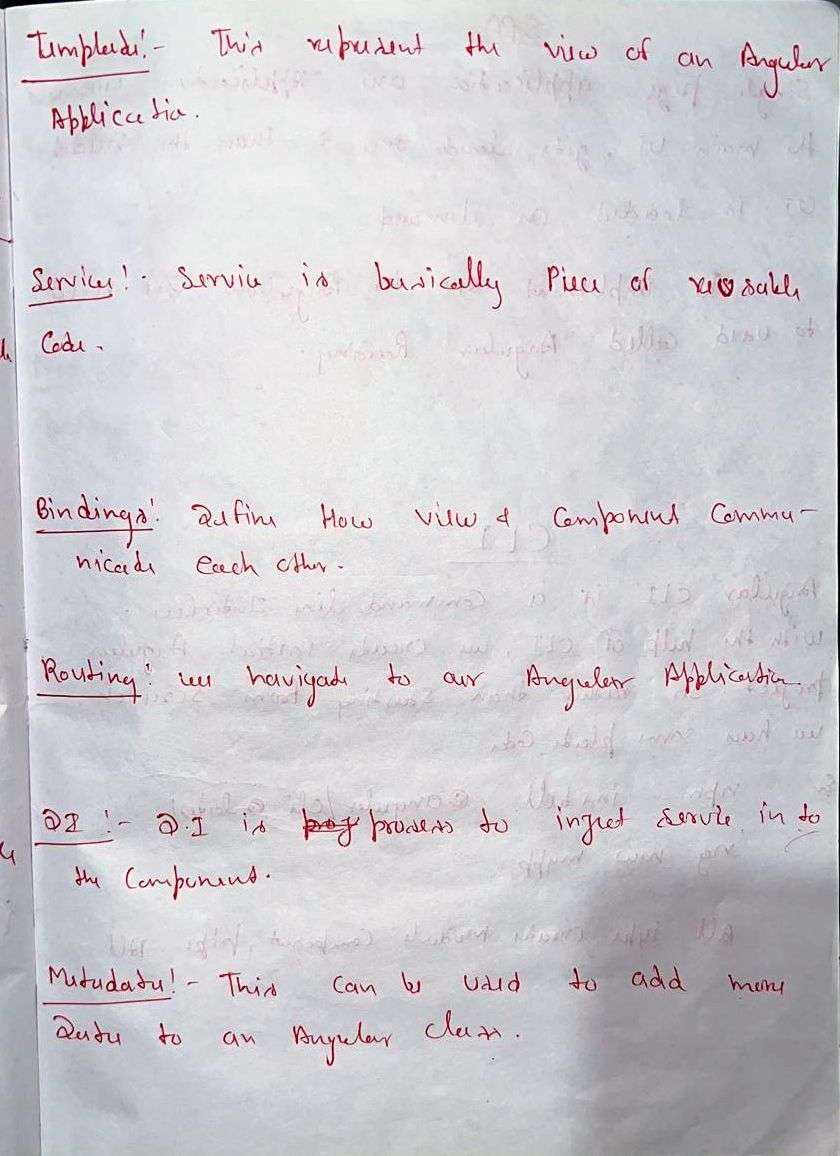 Template:- This represent the view of an Angular
Application.
Services:- Service is basically Piece of reusable
Code.
Bindings: Define How view & Component Commu-
nicate each other.
Routing: we navigate to our Angular Application
DI:- D.I is process to inject service in to
the Component.
Metadata:- This can be used to add more
Data to an Angular Class.